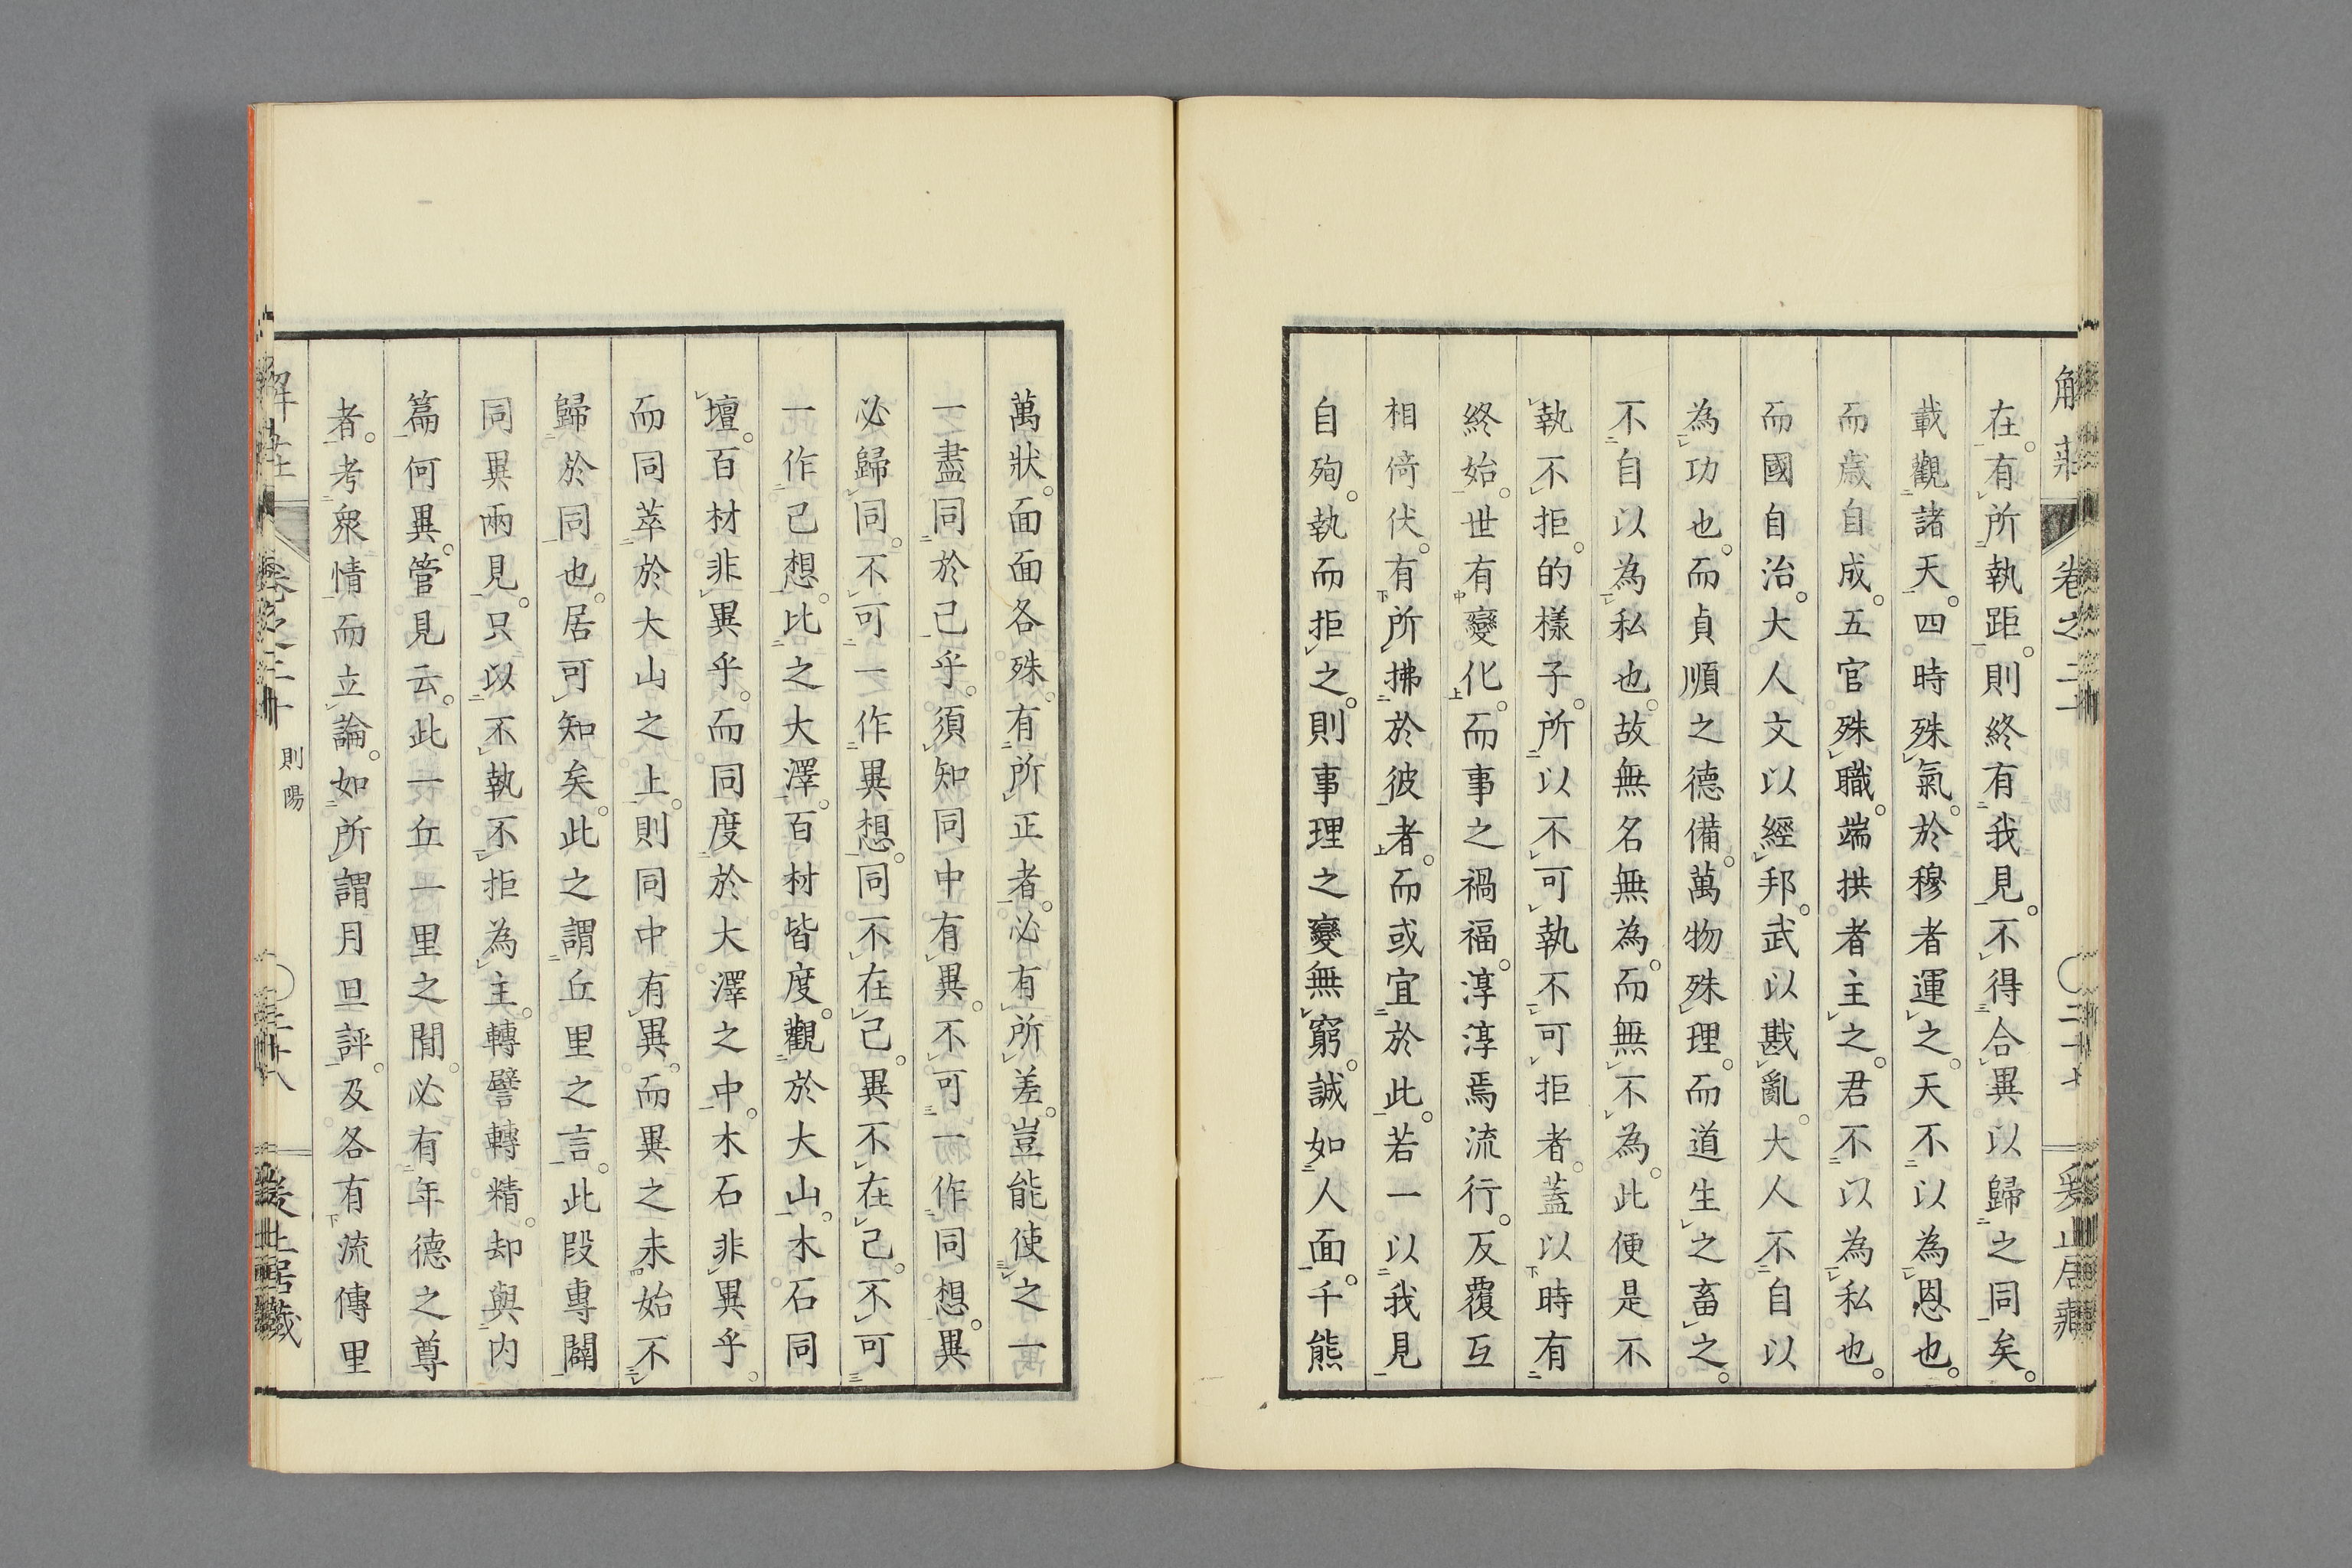 在。有所執距。則終有我見。不得合異以歸之同矣。
載觀諸天。四時殊氣。於穆者運之。天不以為恩也。
而歳自成。五官殊職。端拱者主之。君不以為私也。
而國自治。大人文以經邦。武以戡亂。大人不自以
為功也。而貞順之德備。萬物殊理。而道生之畜之。
不自以為私也。故無名無為。而無不為。此便是不
執不拒。的樣子。所以不可執不可拒者。蓋以時有
終始。世有變化。而事之禍福。淳淳焉流行。反覆互
相倚伏。有所拂於彼者。而或宜於此。若一以我見
自殉。執而拒之。則事理之變無窮。誠如人面。千態
萬狀。面面各殊。有所正者。必有所差。豈能使之一
一盡同於己乎。須知同中有異。不可一作同想。異
必歸同。不可一作異想。同不在己。異不在己。不可
一作己想。比之大澤。百材皆度。觀於大山。木石同
壇。百材非異乎。而同度於大澤之中。木石非異乎。
而同萃於大山之上。則同中有異。而異之未始不
歸於同也。居可知矣。此之謂丘里之言。此段專闢
同異兩見。只以不執不拒為主。轉譬轉精。却與内
篇何異。管見云。此一丘一里之聞。必有年德之尊
者。考衆情而立論。如所謂月旦評。及各有流傳里
則陽